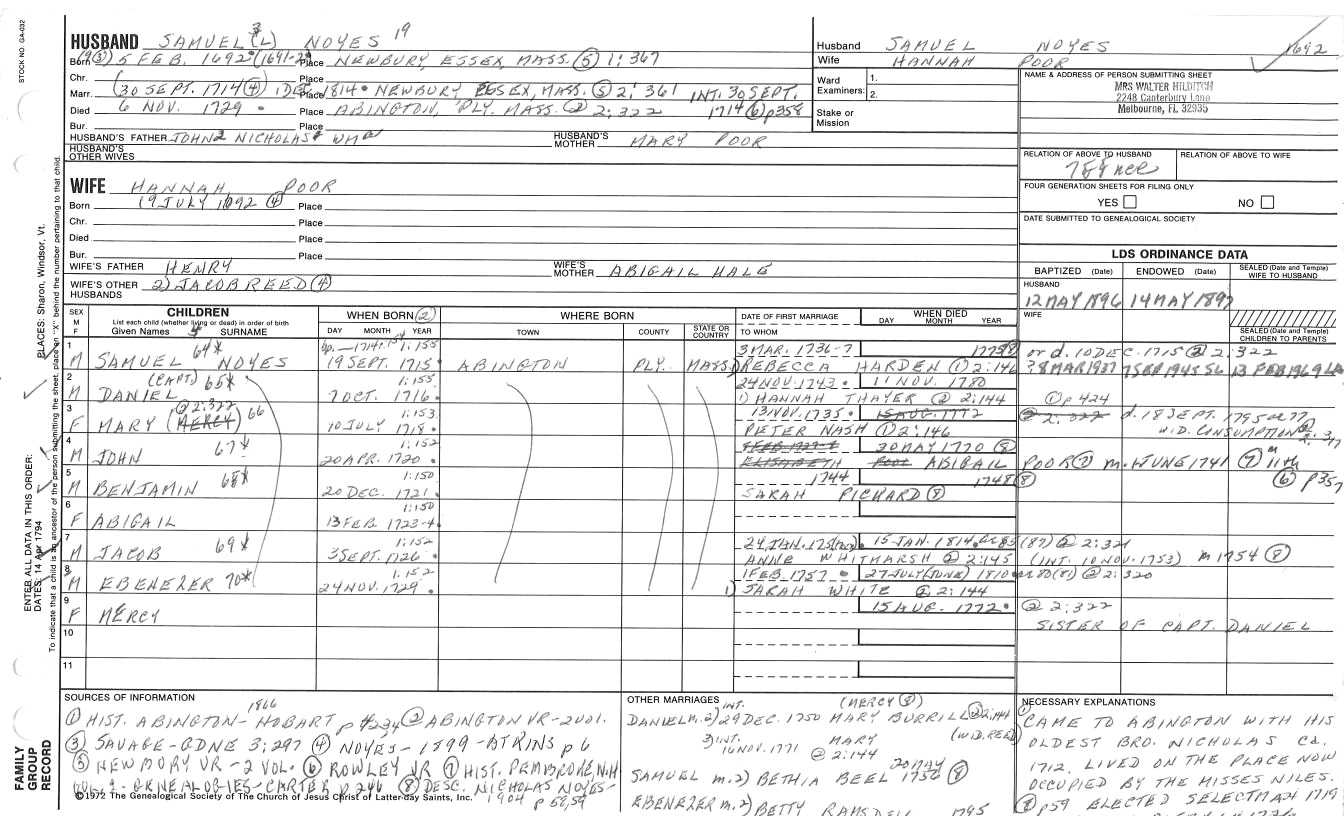 STOCK NO. GA-032
HUSBAND SAMUEL 3 (L) NOYES 19
Born 5 FEB. 1692 (1691-2) Place NEWBURY, ESSEX, MASS. (5) 1:367
Chr. Place
Marr. (30 SEPT. 1714 (4) 1 DEC Place 1814 NEWBURY ESSEX, MASS. (5) 2:361 INT. 30 SEPT.
Died 6 NOV. 1729 Place ABINGTON, PLY. MASS. (2) 2:322 1714 (6) p358
Bur. Place
HUSBAND'S FATHER JOHN 2 NICHOLAS WM
HUSBAND'S MOTHER MARY POOR
HUSBAND'S OTHER WIVES
Husband SAMUEL NOYES 1692
Wife HANNAH POOR
Ward Examiners: 1.
2.
Stake or Mission
NAME & ADDRESS OF PERSON SUBMITTING SHEET
MRS WALTER HILDITCH
2248 Canterbury Lane
Melbourne, FL 32935
RELATION OF ABOVE TO HUSBAND
RELATION OF ABOVE TO WIFE
FOUR GENERATION SHEETS FOR FILING ONLY
YES NO
DATE SUBMITTED TO GENEALOGICAL SOCIETY
WIFE HANNAH POOR
Born 19 JULY 1692 (4) Place
Chr. Place
Died Place
Bur. Place
WIFE'S FATHER HENRY
WIFE'S MOTHER ABIGAIL HALE
WIFE'S OTHER HUSBANDS 2) JACOB REED (4)
LDS ORDINANCE DATA
BAPTIZED (Date) ENDOWED (Date) SEALED (Date and Temple) WIFE TO HUSBAND
HUSBAND
12 MAY 1896 14 MAY 1897
WIFE
SEALED (Date and Temple) CHILDREN TO PARENTS
SEX M F
CHILDREN
List each child (whether living or dead) in order of birth
Given Names SURNAME
WHEN BORN (2)
DAY MONTH YEAR
WHERE BORN
TOWN COUNTY STATE OR COUNTRY
DATE OF FIRST MARRIAGE
TO WHOM
WHEN DIED
DAY MONTH YEAR
1 64* 1:155 3 MAR. 1736-7 or d. 10 DEC. 1715 (2) 2:322
M SAMUEL NOYES 19 SEPT. 1715 ABINGTON PLY. MASS. REBECCA HARDEN (1) 2:146
2 (CAPT) 65* 1:155 24 NOV. 1743 11 NOV. 1780
M DANIEL 7 OCT. 1716 1) HANNAH THAYER (2) 2:144 (1) p 424
3 (2) 2:322 66 1:153 13 NOV. 1735 15 AUG. 1772 (2) 2:322
F MARY (MERCY) 10 JULY 1718 PETER NASH (1) 2:146 WID. CONSUMPTION
4 67* 1:152 20 MAY 1770 (8)
M JOHN 20 APR. 1720 ELISABETH POOR ABIGAIL POOR (7) m. JUNE 1741 (7) 11th
5 68* 1:150 1744 1748 (8) (6) p357
M BENJAMIN 20 DEC. 1721 SARAH PICHARD (8)
6 1:150
F ABIGAIL 13 FEB. 1723-4
7 69* 1:152 15 JAN. 1814 (87) (2) 2:321
M JACOB 3 SEPT. 1726 ANNE WHITMARSH (2) 2:145 (INT. 10 NOV. 1753) m 1754 (8)
8 70* 1:152 1 FEB 1757 27 JULY (JUNE) 1810 (2) 2:320
M EBENEZER 24 NOV. 1729 1) SARAH WHITE (2) 2:144
9 15 AUG. 1772 (2) 2:322
F MERCY SISTER OF CAPT. DANIEL
10
11
PLACES: Sharon, Windsor, Vt.
ENTER ALL DATA IN THIS ORDER:
DATES: 14 Apr 1794
To indicate that a child is an ancestor of the person submitting the sheet, place an "X" behind the number pertaining to that child.
FAMILY GROUP RECORD
SOURCES OF INFORMATION
1866
(1) HIST. ABINGTON-HOBART p (2) ABINGTON VR-2VOL.
(3) SAVAGE-GDNE 3:297 (4) NOYES-1899-ATKINS p 6
(5) NEWBURY VR-2 VOL. (6) ROWLEY VR (7) HIST. PEMBROKE, N.H
GENEALOGIES-CARTER p 246 (8) DESC. NICHOLAS NOYES-
1904 p 58,59
©1972 The Genealogical Society of The Church of Jesus Christ of Latter-day Saints, Inc.
OTHER MARRIAGES
INT. (MERCY (8))
DANIEL m. 2) 29 DEC. 1750 MARY BURRILL (2) 2:144
3) INT. 16 NOV. 1771 MARY (WID. REED)
(2) 2:144
20 MAY
SAMUEL m. 2) BETHIA BEEL 1756 (8)
EBENEZER m. 2) BETTY RAMSDELL 1795
NECESSARY EXPLANATIONS
(1) CAME TO ABINGTON WITH HIS
OLDEST BRO. NICHOLAS Ca.
1712. LIVED ON THE PLACE NOW
OCCUPIED BY THE MISSES NILES.
(8) p59 ELECTED SELECTMAN 1719